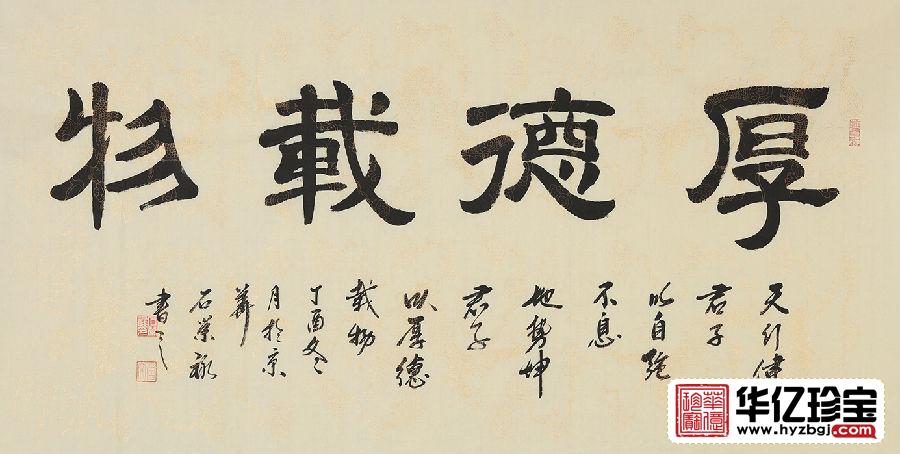 厚德載物
天行健
君子
以自強
不息
地勢坤
君子
以厚德
載物
丁酉冬
月於京
華
石榮祿
書之
华亿珍宝
www.hyzbgj.com